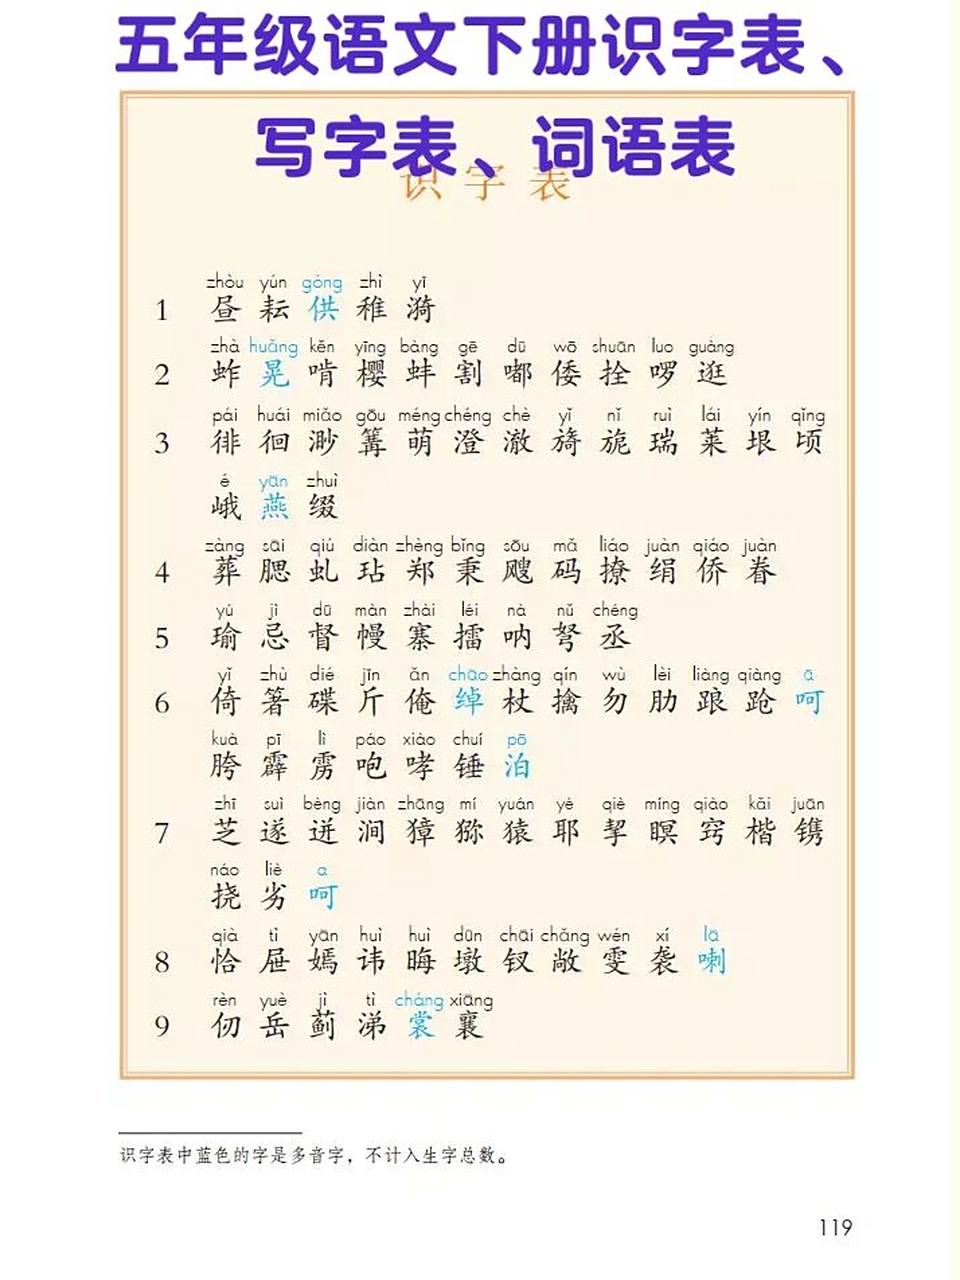 五年级语文下册识字表、
写字表、词语表
识字表
zhòu yún gòng zhì yī
1 昼 耘 供 稚 漪
zhà huǎng kěn yīng bàng gē dū wō shuān luo guàng
2 蚱 晃 啃 樱 蚌 割 嘟 倭 拴 啰 逛
pái huái miǎo gōu méng chéng chè yǐ nǐ ruì lái yín qǐng
3 徘 徊 渺 篝 萌 澄 澈 旖 旎 瑞 莱 垠 顷
é yān zhuì
峨 燕 缀
zàng sāi qiú diàn zhèng bǐng sōu mǎ liáo juàn qiáo juàn
4 葬 腮 虬 玷 郑 秉 飕 码 撩 绢 侨 眷
yú jì dū màn zhài léi nà nǔ chéng
5 瑜 忌 督 幔 寨 擂 呐 弩 丞
yǐ zhù dié jīn ǎn chāo zhàng qín wù lèi liàng qiàng ā
6 倚 箸 碟 斤 俺 绰 杖 擒 勿 肋 踉 跄 呵
kuà pī lì páo xiào chuí pō
胯 霹 雳 咆 哮 锤 泊
zhī suì bèng jiàn zhāng mí yuán yé qiè míng qiào kǎi juān
7 芝 遂 迸 涧 獐 猕 猿 耶 挈 瞑 窍 楷 镌
náo liè a
挠 劣 呵
qià tì yān huì huì dūn chāi chǎng wén xí lā
8 恰 屉 嫣 讳 晦 墩 钗 敞 雯 袭 喇
rèn yuè jì tì cháng xiāng
9 仞 岳 蓟 涕 裳 襄
识字表中蓝色的字是多音字，不计入生字总数。
119